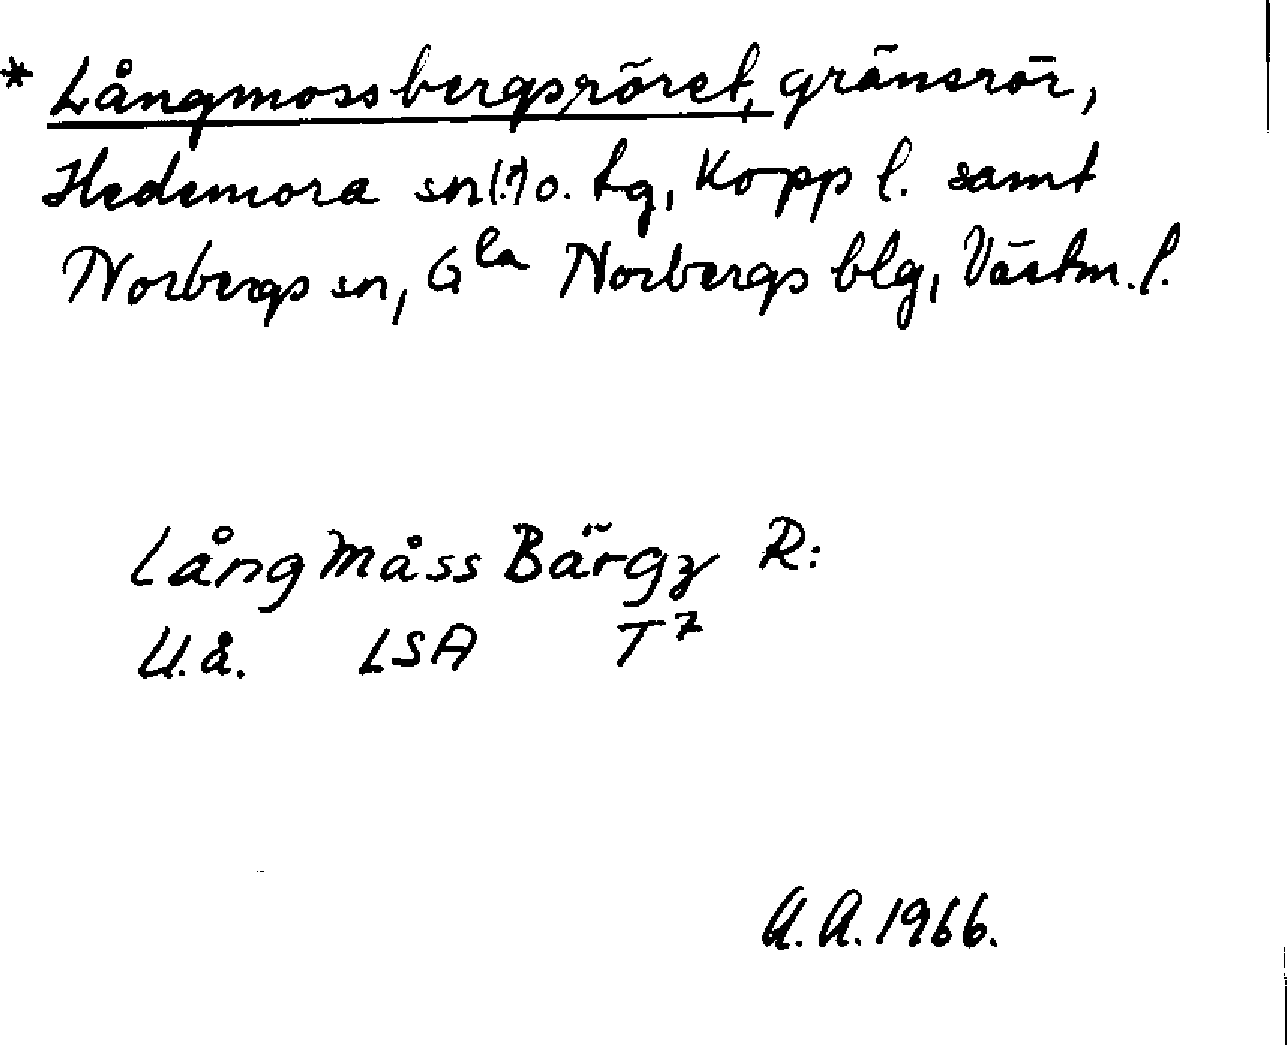 * Långmossbergsröret, gränsrör,
Hedemora sn(?) o. tg, Kopp l. samt
Norbergs sn, Gla Norbergs blg, Västm. l.
Lång Måss Bärgz R:
U.å. LSA T7
A.A. 1966.